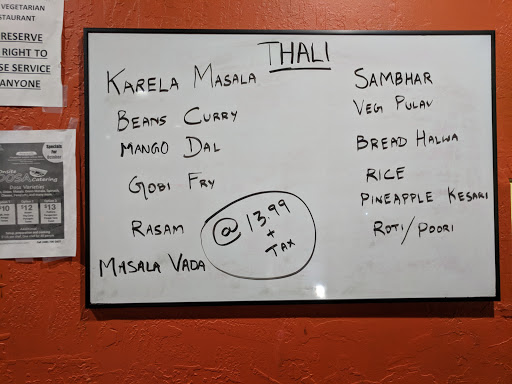 VEGETARIAN
STAURANT
RESERVE
RIGHT TO
SE SERVICE
ANYONE
Specials
For
DOSA
Catering
Dosa Varieties
$10
$12
$13
THALI
KARELA MASALA
BEANS CURRY
MANGO DAL
GOBI FRY
RASAM
MASALA VADA
@ 13.99
+
TAX
SAMBHAR
VEG PULAV
BREAD HALWA
RICE
PINEAPPLE KESARI
ROTI/POORI